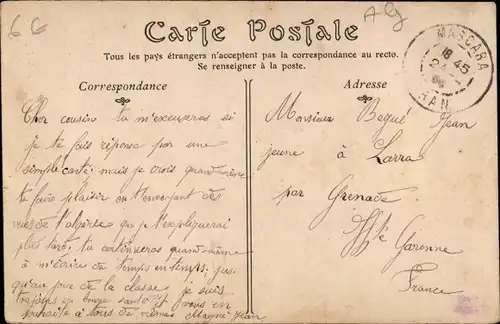 6 C
Alg
Carte Postale
Tous les pays étrangers n'acceptent pas la correspondance au recto.
Se renseigner à la poste.
MASCARA
18 45
24
ORAN
Correspondance
Adresse
Cher cousin tu m'excuseras si
je te fais réponse par une
simple carte mais je crois quand-même
te faire plaisir en t'envoyant des
vues de l'algérie que je t'expliquerai
plus tard. tu continueras quand-même
à m'écrire de temps en temps; jus
qu'au jour de la classe je suis
toujours en bonne santé et vous en
souhaite à tous de même Magné Jean
Monsieur Begué Jean
jeune à Larra
par Grenade
Hte Garonne
France